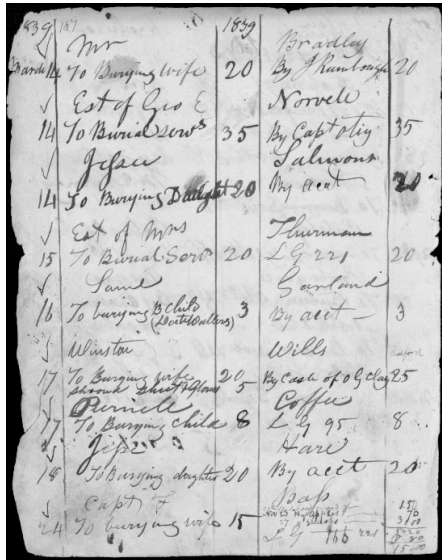 1839 187 1839
Mr Bradley
March 14 To Burying wife 20 By J Rumbough 20
Est of Geo E Norvell
14 To Burial Servs 35 By Capt Otey 35
Jesse Salmons
14 To Burying Daught 20 By acct 20
Est of Mrs Thurman
15 To Burial Servs 20 L G 221 20
Saml Garland
16 To burying B Child 3 By acct 3
Winston Wills
17 To Burying wife 20 By Cash of O G Clay 25
Shroud 5
Coffee
17 To Burying Child 8 L G 95 8
Jesse Hare
18 To Burying daughter 20 By acct 20
Capt T Bass
24 To burying wife 15 L G 221